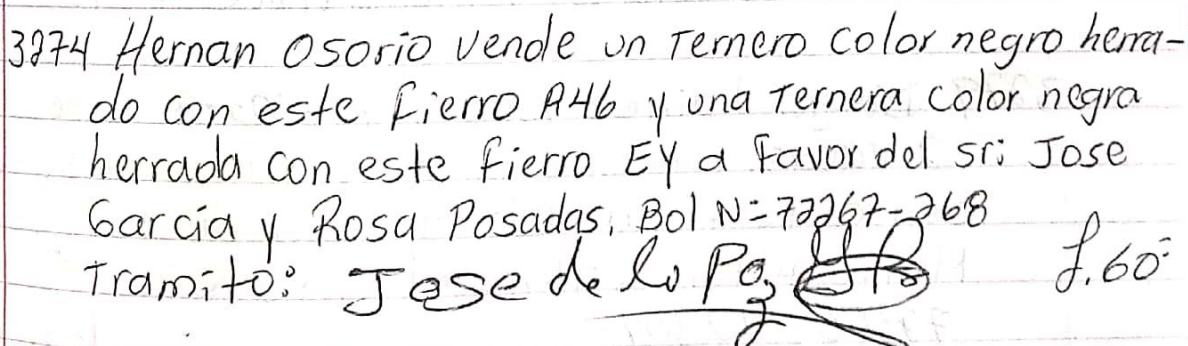 3274 Hernan Osorio vende un Ternero color negro herra-
do con este fierro A46 y una Ternera color negra
herrada con este fierro EY a favor del sr: Jose
Garcia y Rosa Posadas, Bol N=72267-268
Tramito: Jose de la Paz L.60=